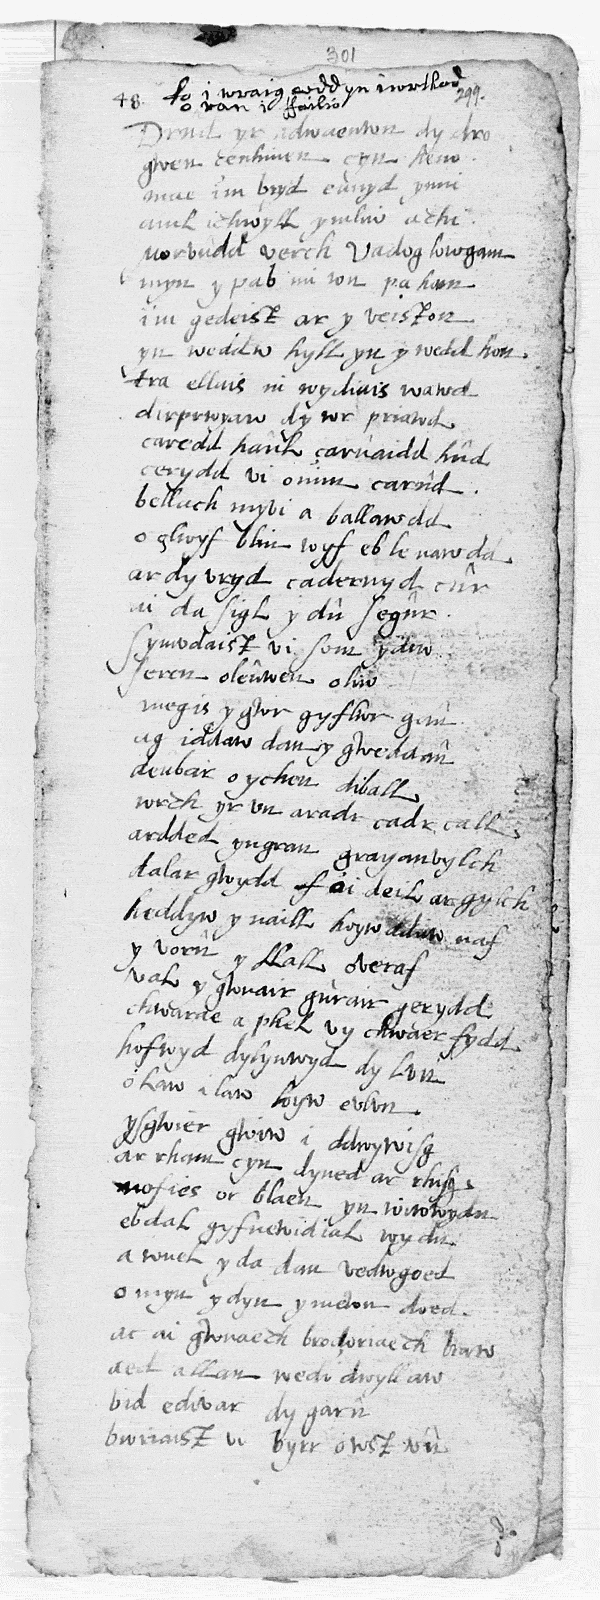 301
48. fo i wraig oedd yn i wrthod 299.
o ran i ffailio
Drud yr adwaenwn dy dro
gwen cenhinen cyn heno
mae i'm bryd eûnyd ynni
aml ichwyll ymliw a thi
Morvudd verch Vadog lowgam
myn y pab mi wn paham
i'm gedeist ar y veiston
yn weddw hyll yn y wedd hon.
tra ellais ni wydiais wawd
dirprwyaw dy wr priawd
caredd haûl carûaidd hûd
cerydd vi onim carûd.
bellach myvi a ballawdd
o glwyf blin wyf eb le nawdd
ar dy vryd cadernyd cûr
ai da sigl y dû segûr.
symvdaist vi som ydiw
seren oleûwen oliw
megis y gŵr gyflwr gaû
ag iddaw dan y gweddaû
deubar o ychen diball
wrth yr vn aradr cadr call
ardded yngran grayanvylch
dalar gwydd fai deil ar gylch
heddyw y naill hoyw ddiw naf
y vorû y llall overaf
val y gwnair gûrair gerydd
chwarae a phel vy chwaer fydd
hofwyd dylynwyd dy lvn
o law i law loyw evlvn
ysgwier gwiw i ddwywisg
ar rham cyn dyned ar rhisg
mofies or blaen yn winowydn
ebdal gyfnewidial wydn
a wnel y da dan vedwgoed
o myn y dyn ymewn doed
ac ai gwnaeth brodoriaeth braw
aed allan wedi dwyllaw
bid edivar dy garû
bwriaist vi byrr owst vû